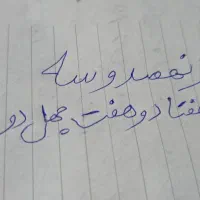 نهصد و سه
هفتاد و هفت چهل دو